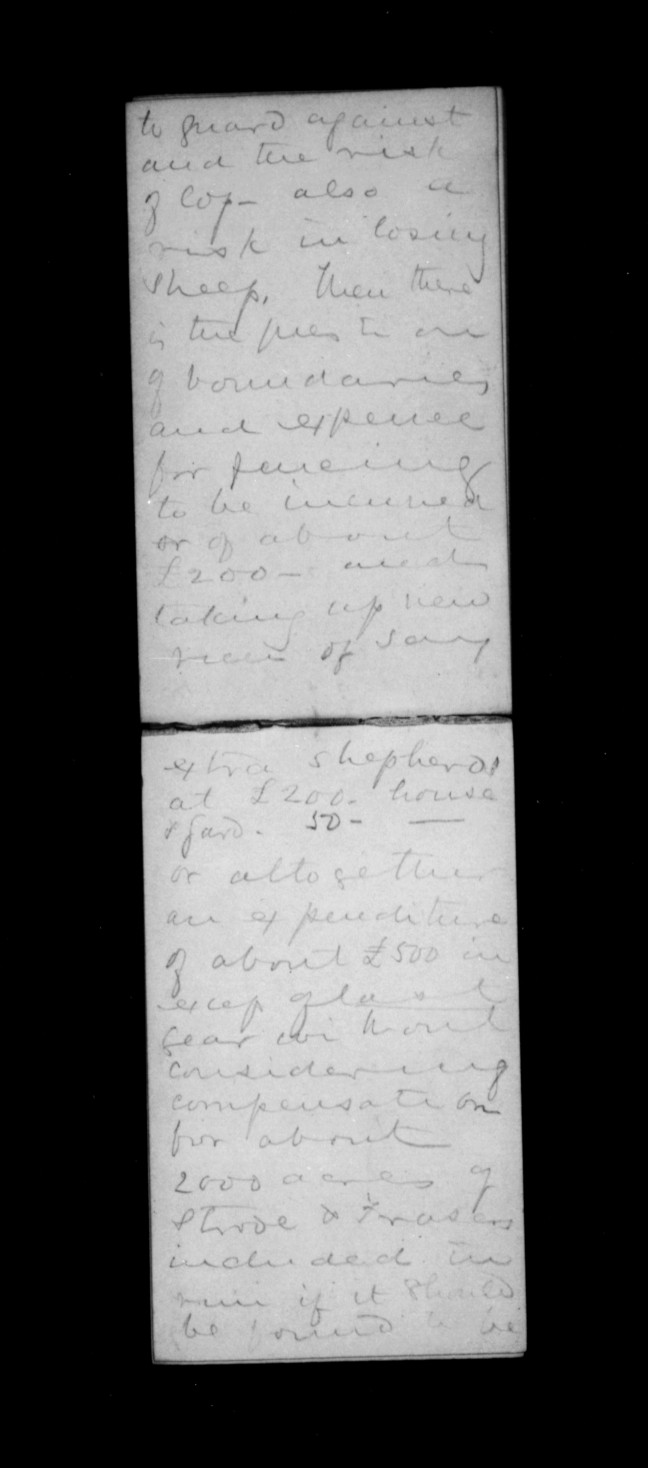 to guard against
and the risk
of lops also a
risk in losing
sheep. Then there
is the question
of boundaries
and expence
for fencing
to be incurred
or of about
£200 - and
taking up new
of say
extra shepherds
at £200. house
& gard. 50 - —
or altogether
an expenditure
of about £500 in
excep of last
year without
considering
compensation
for about
2000 acres of
Strode & Frasers
included in
run if it should
be found to be